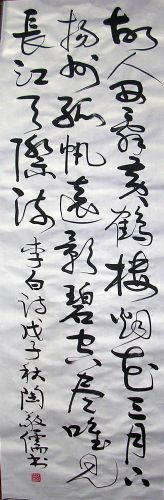 故人西辭黃鶴樓烟花三月下
揚州孤帆遠影碧空盡唯見
長江天際流 李白詩 戊子秋 陶敬儒書